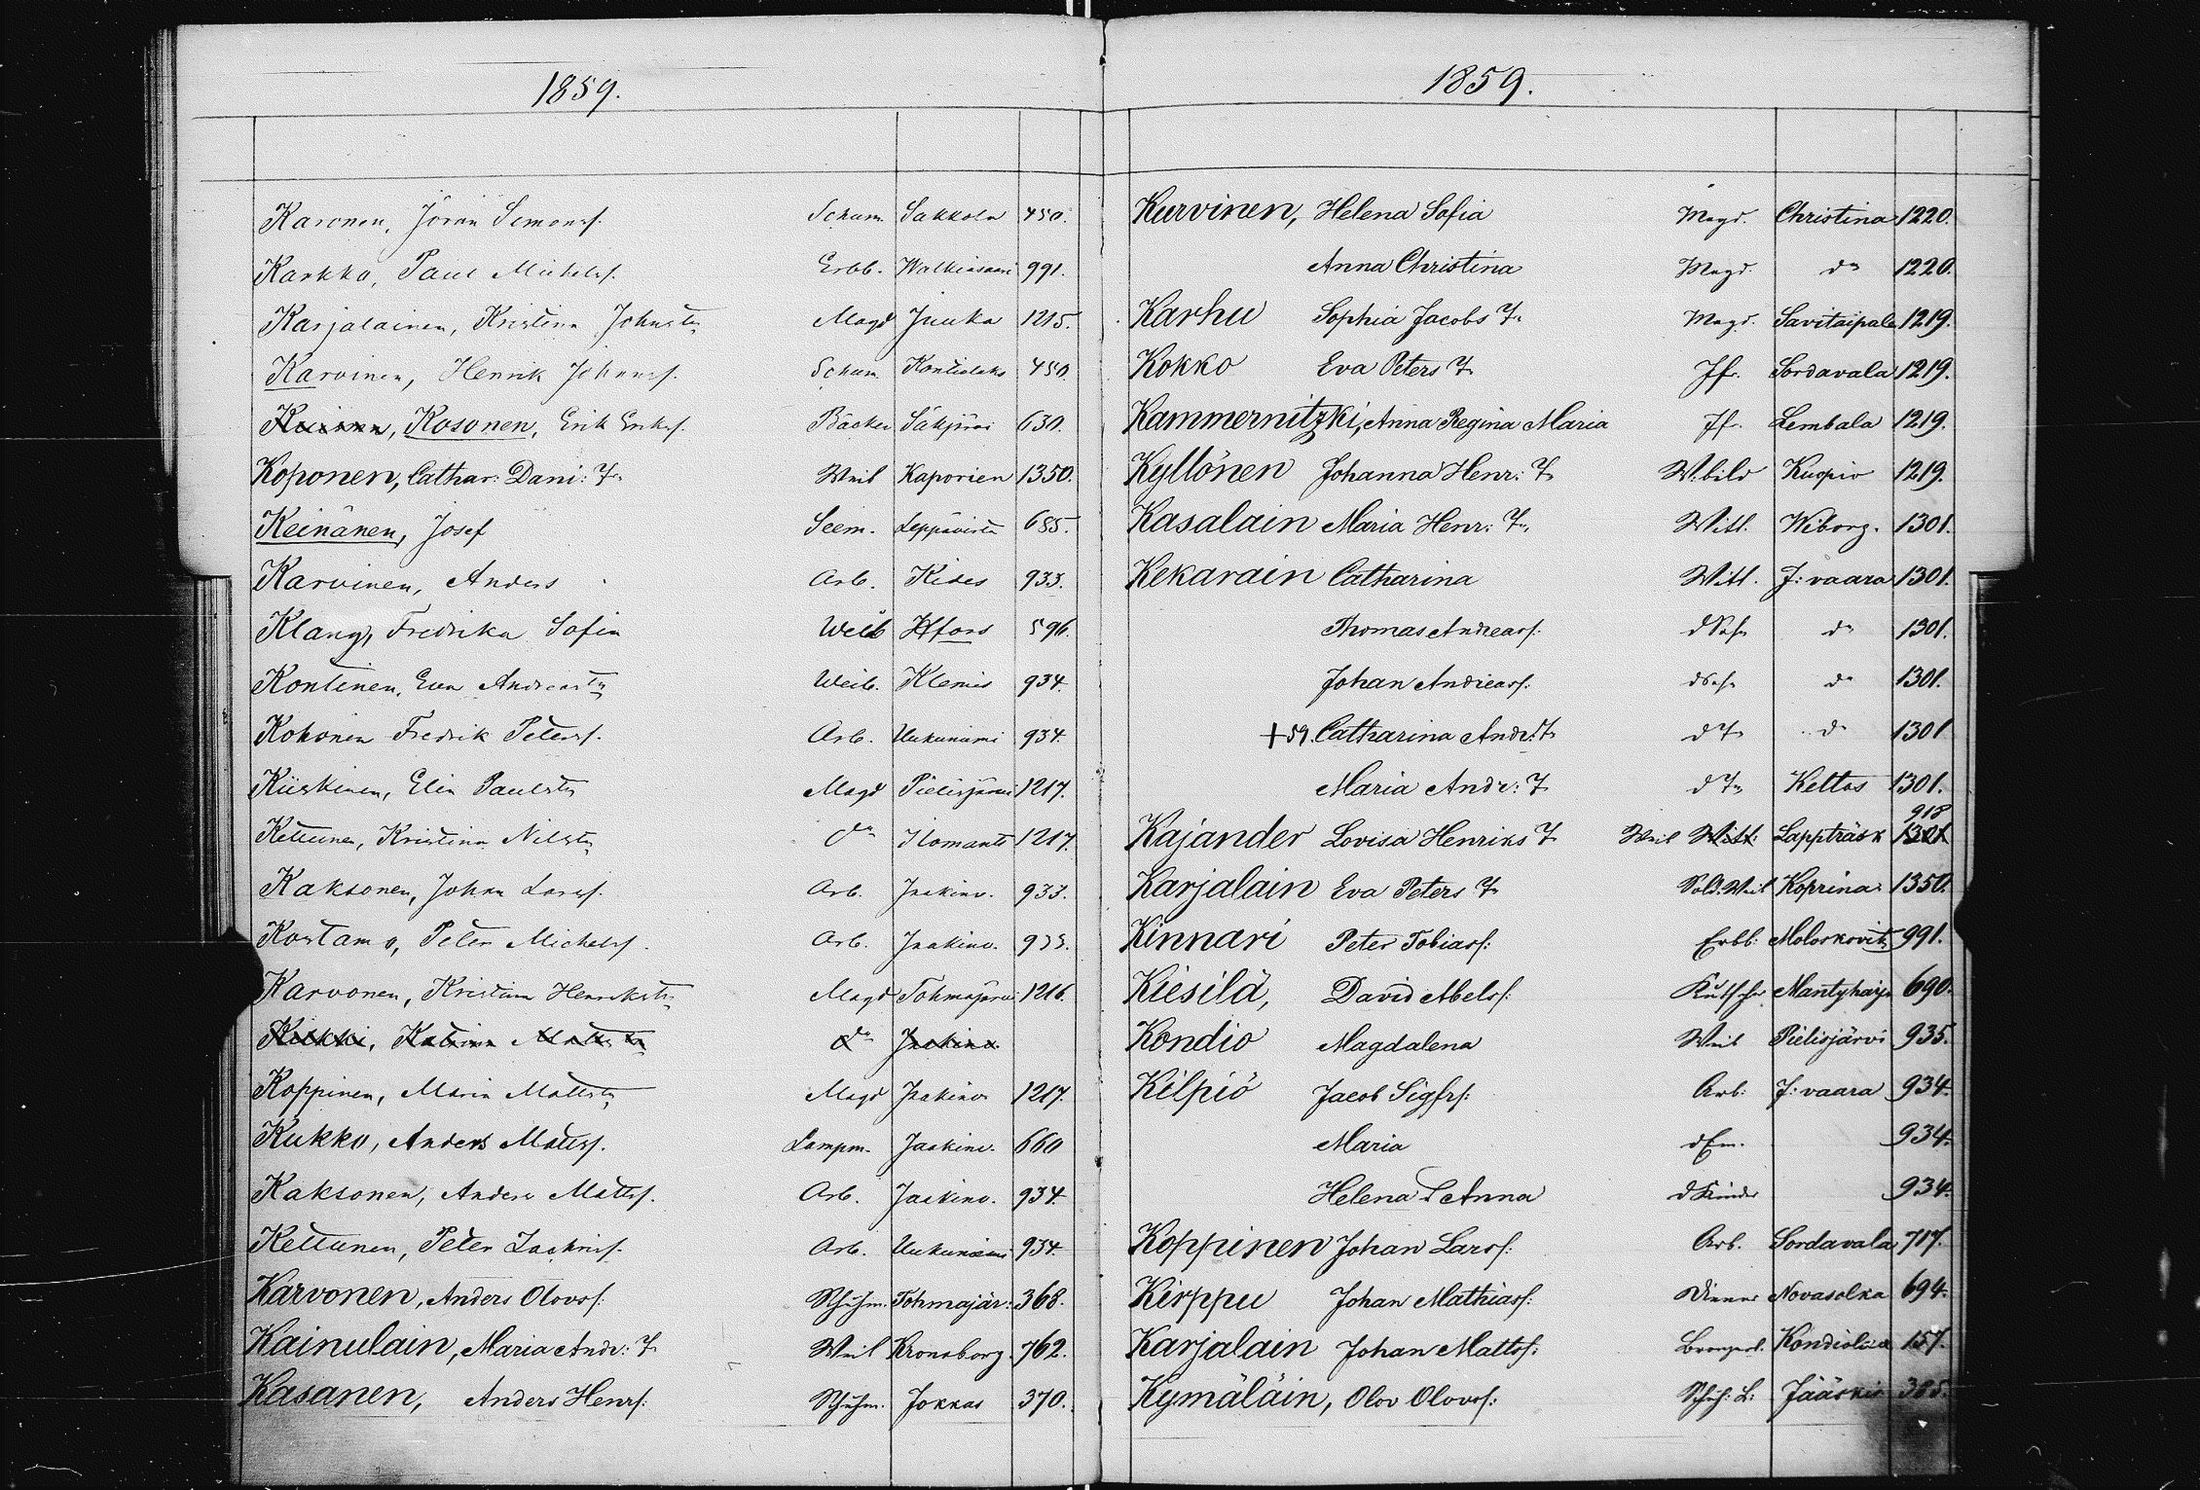 1859.
Karonen, Jöran Simonsf. Schum. Sakkola 450.
Karkko, Paul Michelsf. Erbb. Walkiasaari 991.
Karjalainen, Kristina Johnstr Magd Juuka 1215.
Karvinen, Henrik Johnnsf. Schum. Kontiolaks 450.
Kosonen, Erik Eriksf. Bäcker Säkjärvi 630.
Koponen, Cathar: Dani: Tr Weib Kaporien 1350.
Keinänen, Josef Seem. Leppävirta 685.
Karvinen, Anders Arb. Kides 933.
Klang, Fredrika Sofia Weib Hfors 596.
Kontinen, Eva Andreastr Weib. Klemis 934.
Kohonen Fredrik Petersf. Arb. Uukuniemi 934.
Kiiskinen, Elin Paulstr Magd Pielisjärvi 1217.
Kettunen, Kristina Nilstr do Ilomants 1217.
Kaksonen, Johan Larsf. Arb. Jaakimv. 933.
Kostamo, Peter Michelsf. Arb. Jaakimv. 933.
Karvonen, Kristina Henrikstr Magd Tohmajärvi 1216.
Kukki, Katrina Matts tr do Jaakimv
Koppinen, Maria Mattstr Magd Jaakimv 1217.
Kukko, Anders Mattsf. Lampm. Jaakimv. 660
Kaksonen, Anders Mattsf. Arb. Jaakimv. 934.
Kettunen, Peter Zachrisf. Arb. Uukuniemi 934.
Karvonen, Anders Olovsf: Schuhm. Tohmajär: 368.
Kainulain, Maria Andr: Tr Weib Kronoborg 762.
Kasanen, Anders Henrsf: Schuhm. Jokkas 370.
1859.
Kurvinen, Helena Sofia Magd. Christina 1220.
Anna Christina Magd. do 1220.
Karhu Sophia Jacobs Tr Magd. Savitaipale 1219.
Kokko Eva Peters Tr Jfr. Sordavala 1219.
Kammernitzki, Anna Regina Maria Jf. Lembala 1219.
Kyllönen Johanna Henr: Tr Wbild Kuopio 1219.
Kasalain Maria Henr: Tr Witt. Wiborg. 1301.
Kekarain Catharina Witt. J:vaara 1301.
Thomas Andreasf: dSohn do 1301.
Johan Andreasf: dSohn do 1301.
+59. Catharina Andr: Tr d Tr do 1301
Maria Andr: Tr d Tr Keltos 1301.
918
Kajander Lovisa Henriks Tr Weib Witt: Lappträsk 1301
Karjalain Eva Peters Tr Sold. Weib Koprina 1350.
Kinnari Peter Tobiasf: Erbb: Moloskovitz 991.
Kiesilä, David Abelsf: Kutscher Mantyharju 690.
Kondio Magdalena Weib Pielisjärvi 935.
Kilpiö Jacob Sigfrsf: Arb: J:vaara 934.
Maria dEm. 934.
Helena & Anna d Kinder 934.
Koppinen Johan Larsf: Arb. Sordavala 717.
Kirppu Johan Mathiasf: Diener Novasolka 694.
Karjalain Johan Mattsf: Kondiolax 157.
Kymäläin, Olov Olovsf: Schuh: L: Jääskis 385.